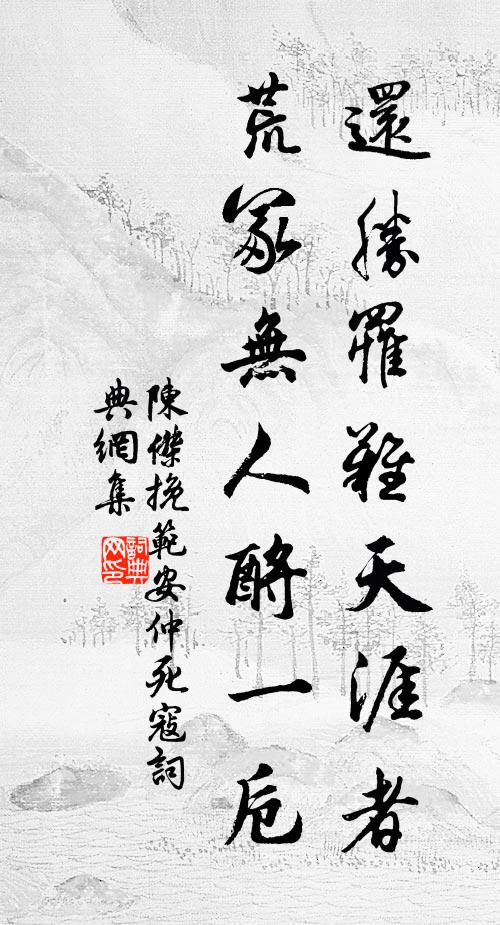 還勝羅難天涯者
荒冢無人酹一卮
陳傑挽範安仲死寇詞
典網集
詞典
网印